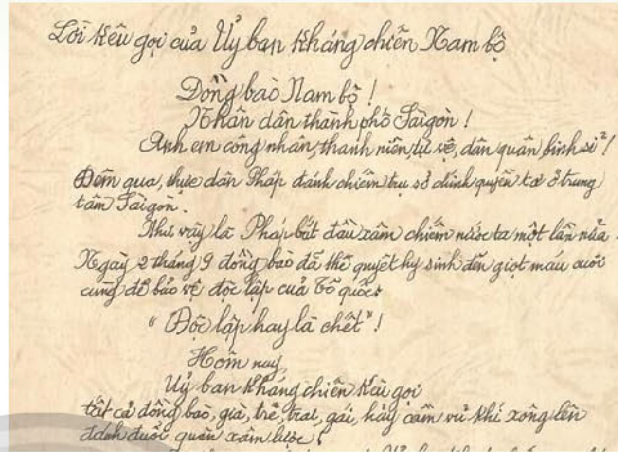 Lời kêu gọi của Uỷ ban kháng chiến Nam bộ
Đồng bào Nam bộ !
Nhân dân thành phố Sàigòn !
Anh em công nhân, thanh niên, tự vệ, dân quân, binh sĩ !
Đêm qua, thực dân Pháp đánh chiếm trụ sở chính quyền ta ở trung
tâm Saigon.
Như vậy là Pháp bắt đầu xâm chiếm nước ta một lần nữa.
Ngày 2 tháng 9 đồng bào đã thề quyết hy sinh đến giọt máu cuối
cùng để bảo vệ độc lập của Tổ quốc:
" Độc lập hay là chết " !
Hôm nay,
Uỷ ban kháng chiến kêu gọi
tất cả đồng bào, già, trẻ, trai, gái, hãy cầm vũ khí xông lên
đánh đuổi quân xâm lược.